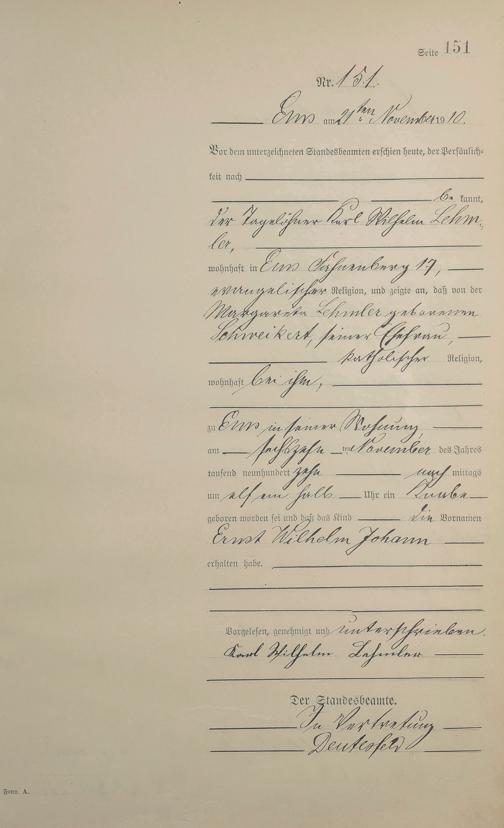 Seite 151
Nr. 151.
Ems am 21ten November 1910.
Vor dem unterzeichneten Standesbeamten erschien heute, der Persönlich-
keit nach
be kannt,
der Tagelöhner Karl Wilhelm Lehm-
ler,
wohnhaft in Ems 17,
evangelischer Religion, und zeigte an, daß von der
Margareta Lehmler geborenen
Schweikert, seiner Ehefrau,
katholischer Religion,
wohnhaft bei ihm,
zu Ems in seiner Wohnung
am sechszehn ten November des Jahres
tausend neunhundert zehn nach mittags
um elf ein halb Uhr ein Knabe
geboren worden sei und daß das Kind die Vornamen
Ernst Wilhelm Johann
erhalten habe.
Vorgelesen, genehmigt und unterschrieben.
Karl Wilhelm Lehmler
Der Standesbeamte.
In Vertretung
Form. A.